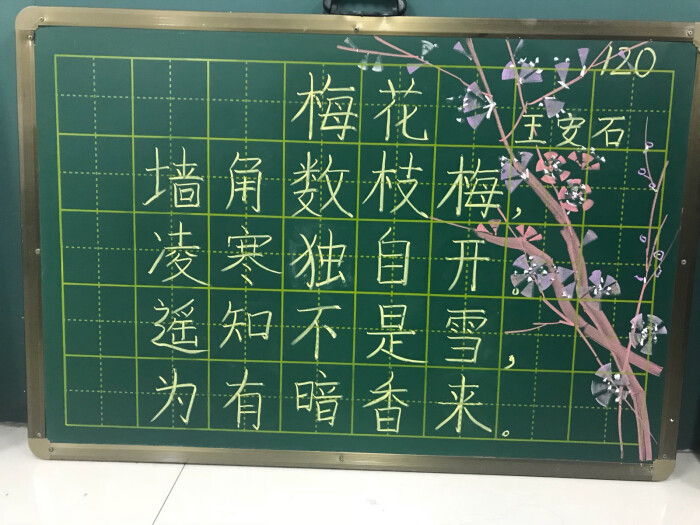 120
梅花
王安石
墙角数枝梅,
凌寒独自开。
遥知不是雪,
为有暗香来。